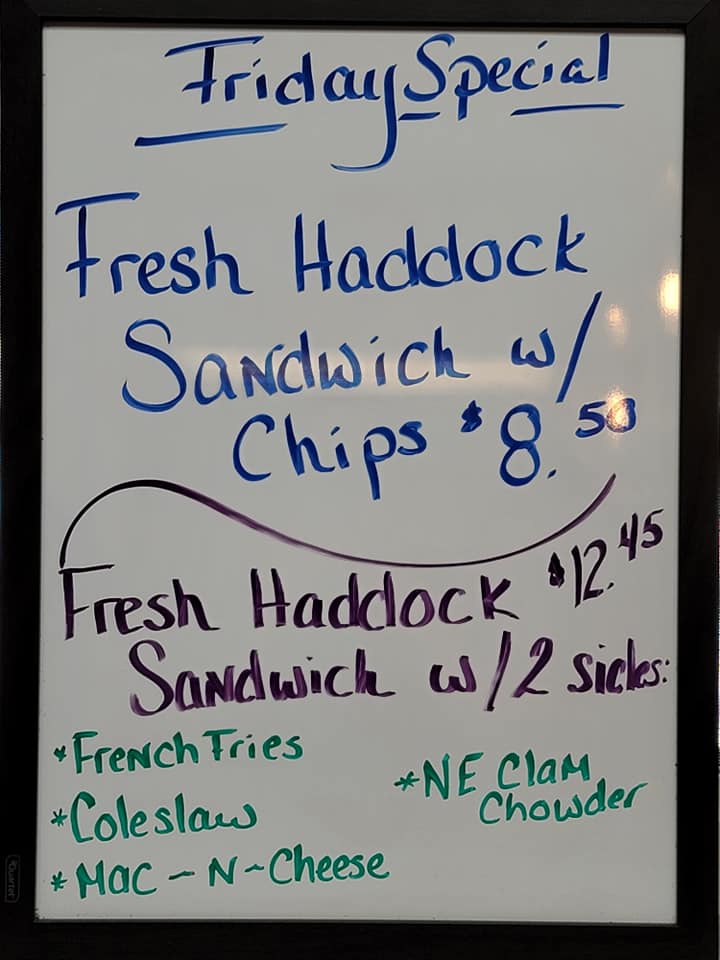 Friday Special
Fresh Haddock
Sandwich w/
Chips $8.50
Fresh Haddock $12.45
Sandwich w/2 sides:
*French Fries
*Coleslaw
*Mac-N-Cheese
*NE Clam
Chowder
Quartet